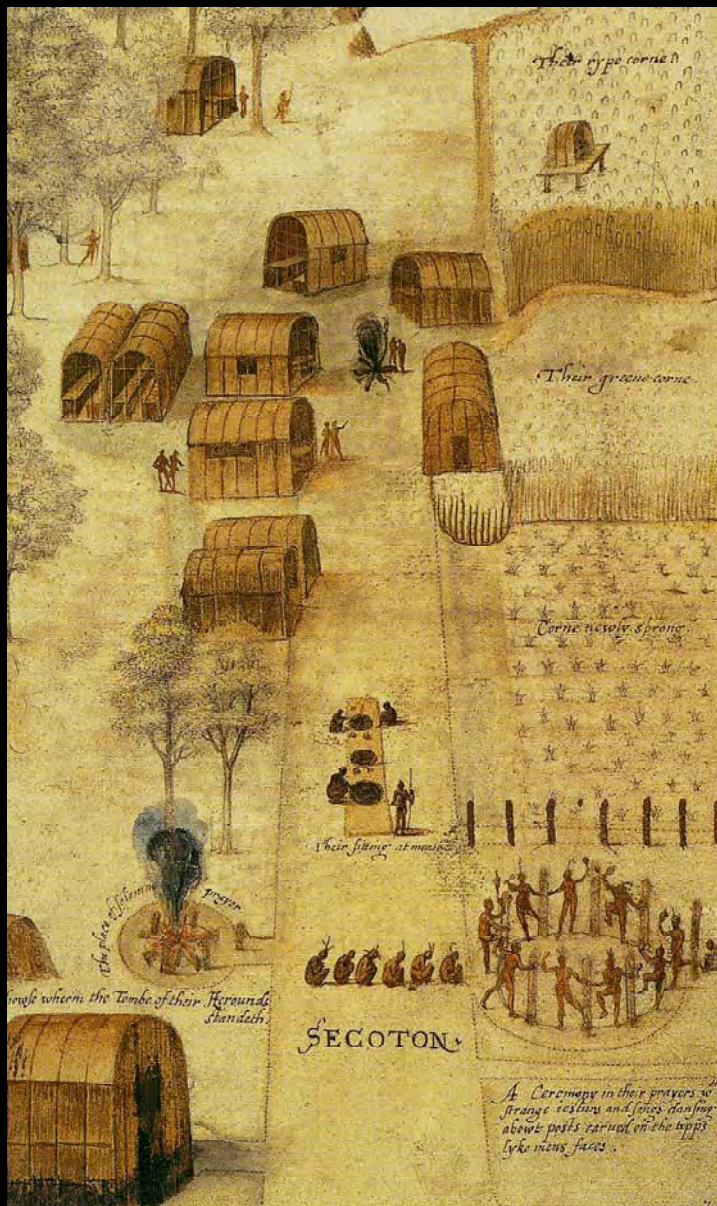 Their rype corne.
Their greene corne.
Corne newly sprong.
Their sitting at meate.
The place of solemne prayer.
howse wherin the Tombe of their Herounds
standeth.
SECOTON.
A Ceremony in their prayers w
strange iesturs and songs dansing
abowt posts carued on the topps
lyke mens faces.